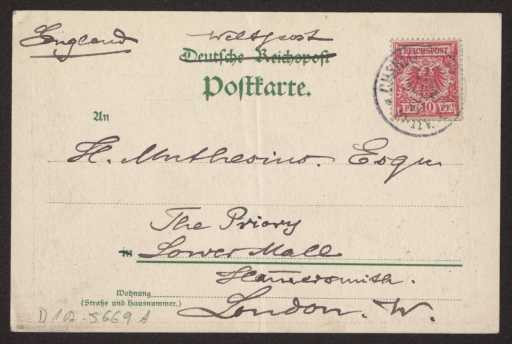 England
Weltpost
Deutsche Reichspost
Postkarte.
REICHSPOST
10 PF. 10
An
H. Muthesius. Esqu
The Priory
in Lower Mall
Hammersmith.
Wohnung
(Straße und Hausnummer.)
London. W.
D 102-5669 A